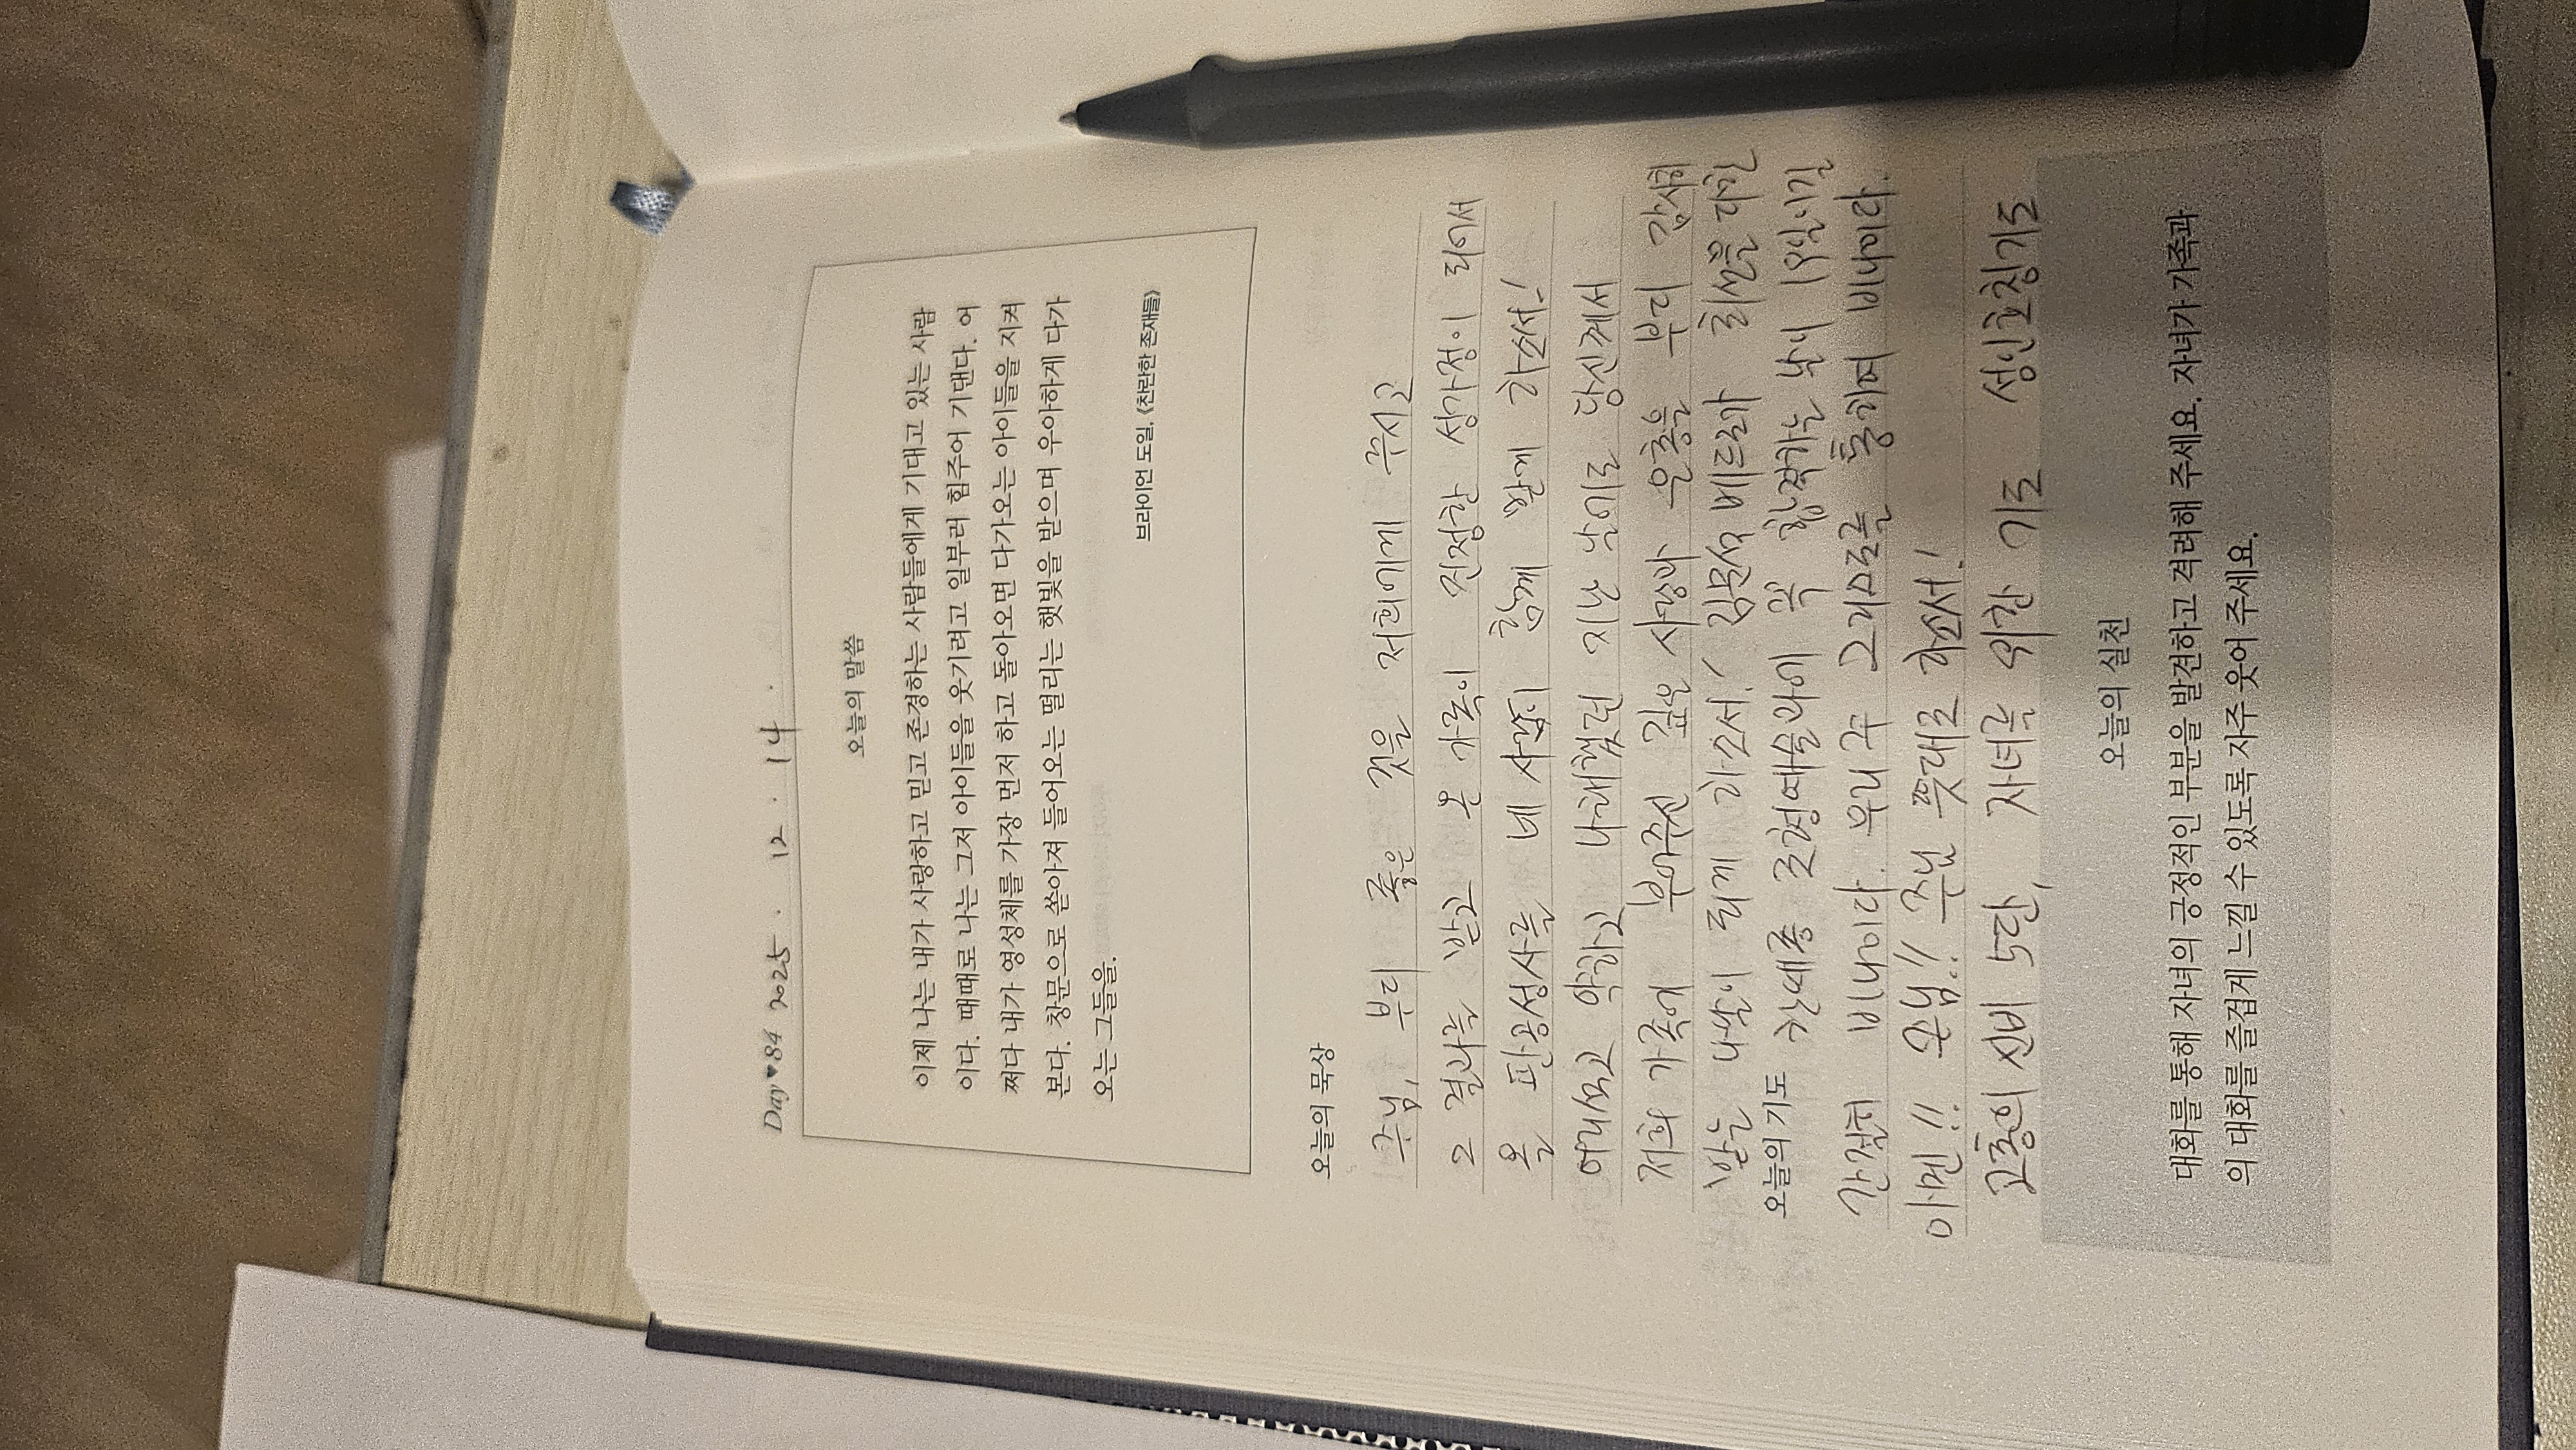 Day♥84 2025. 12. 14.
오늘의 말씀
이제 나는 내가 사랑하고 믿고 존경하는 사람들에게 기대고 있는 사람
이다. 때때로 나는 그저 아이들을 웃기려고 일부러 힘주어 기댄다. 어
쩌다 내가 영성체를 가장 먼저 하고 돌아오면 다가오는 아이들을 지켜
본다. 창문으로 쏟아져 들어오는 떨리는 햇빛을 받으며 우아하게 다가
오는 그들을.
브라이언 도일, 《찬란한 존재들》
오늘의 묵상
주님, 부디 좋은 것을 저희에게 주시고
그 결과를 받고 온 가족이 진정한 성가정이 되어서
온 판공성사를 네 사람이 함께 받게 하소서!
어리석고 약하고 나태했던 지난 날이로 당신께서
저희 가족에 부어주신 깊은 사랑과 은총을 부디 감사히
받는 나날이 되게 하소서! 김문석 베드로와 희선을 대한
오늘의 기도
간대종 로정마슬라이 꼭 합격하는 날이 19일이길
간절히 비나이다. 우리 주 그리스도를 통하여 비나이다.
아멘!! 주님!! 주님 뜻대로 하소서!
고통의 신비 5단, 자녀를 위한 기도 성인호칭기도
오늘의 실천
대화를 통해 자녀의 긍정적인 부분을 발견하고 격려해 주세요. 자녀가 가족과
의 대화를 즐겁게 느낄 수 있도록 자주 웃어 주세요.